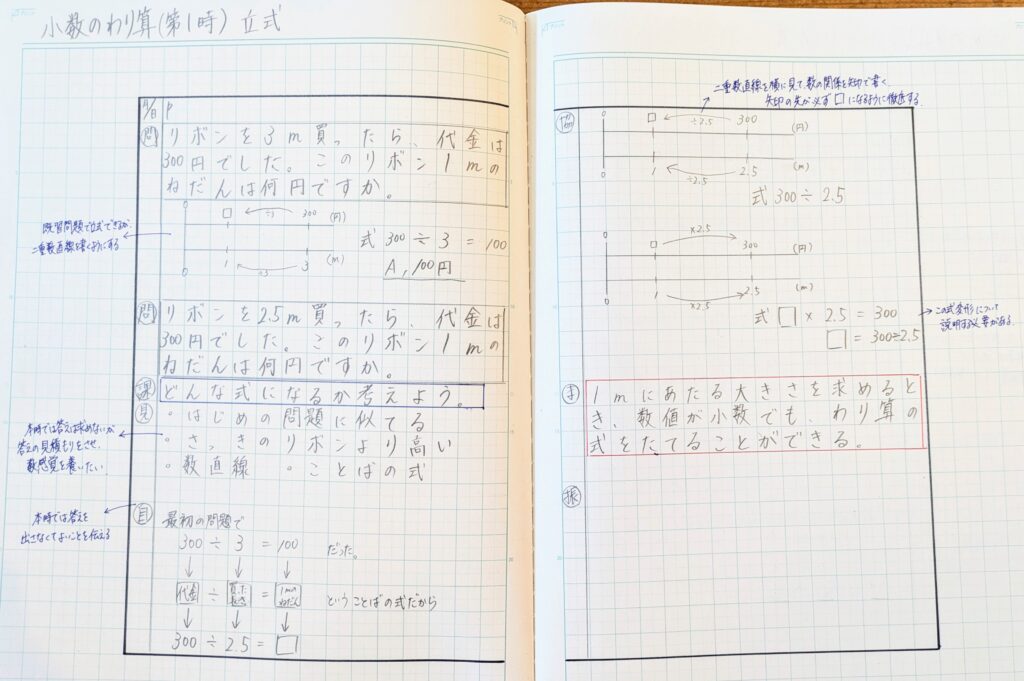 小数のわり算(第1時) 立式
月/日 P
問 リボンを3m買ったら、代金は
300円でした。このリボン1mの
ねだんは何円ですか。
0 □ ÷3 300 (円)
0 1 ÷3 3 (m)
式 300÷3=100
A, 100円
既習問題で立式できるが、
二重数直線を書くようにする
問 リボンを2.5m買ったら、代金は
300円でした。このリボン1mの
ねだんは何円ですか。
課 どんな式になるか考えよう。
見 ・はじめの問題に似てる
・さっきのリボンより高い
・数直線 ・ことばの式
本時では答えは求めないが
答えの見積もりをさせ、
数感覚を養いたい
本時では答えを
出さなくてよいことを伝える
自 最初の問題で
300 ÷ 3 = 100 だった。
↓ ↓ ↓
代金 ÷ 買った長さ = 1mのねだん ということばの式だから
↓ ↓ ↓
300 ÷ 2.5 = □
二重数直線を横に見て、数の関係を矢印で書く
矢印の先が必ず□になるように徹底する。
0 □ ÷2.5 300 (円)
0 1 ÷2.5 2.5 (m)
式 300÷2.5
×2.5
0 □ 300 (円)
0 1 2.5 (m)
×2.5
式 □ × 2.5 = 300
□ = 300÷2.5
この式変形について
説明する必要がある。
ま 1mにあたる大きさを求めると
き、数値が小数でも、わり算の
式をたてることができる。
振